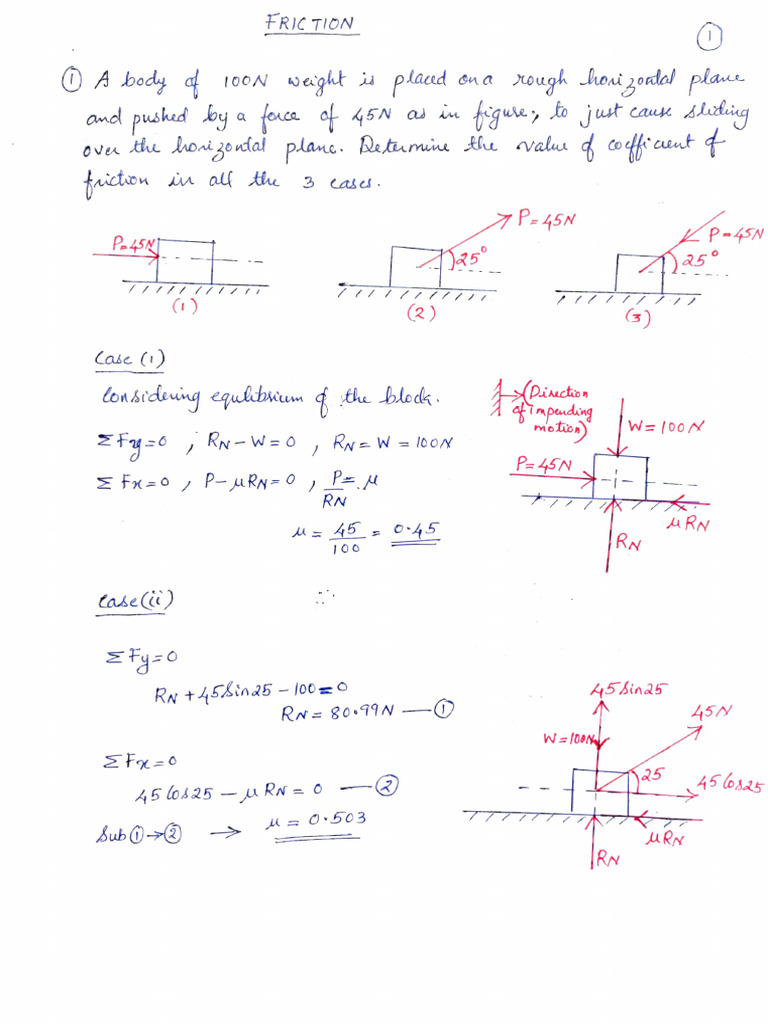 FRICTION
1
① A body of 100N weight is placed on a rough horizontal plane
and pushed by a force of 45N as in figure, to just cause sliding
over the horizontal plane. Determine the value of coefficient of
friction in all the 3 cases.
P=45N
(1)
P=45N
25°
(2)
P=45N
25°
(3)
Case (1)
Considering equlibrium of the block.
ΣFy=0 , RN-W=0 , RN=W=100N
ΣFx=0 , P-μRN=0 , P/RN=μ
μ = 45/100 = 0.45
(Direction
of impending
motion)
W=100N
P=45N
μRN
RN
Case (ii)
ΣFy=0
RN+45Sin25-100=0
RN=80.99N —①
ΣFx=0
45Cos25-μRN=0 —②
Sub①→② → μ=0.503
45Sin25
45N
W=100N
25
45Cos25
μRN
RN